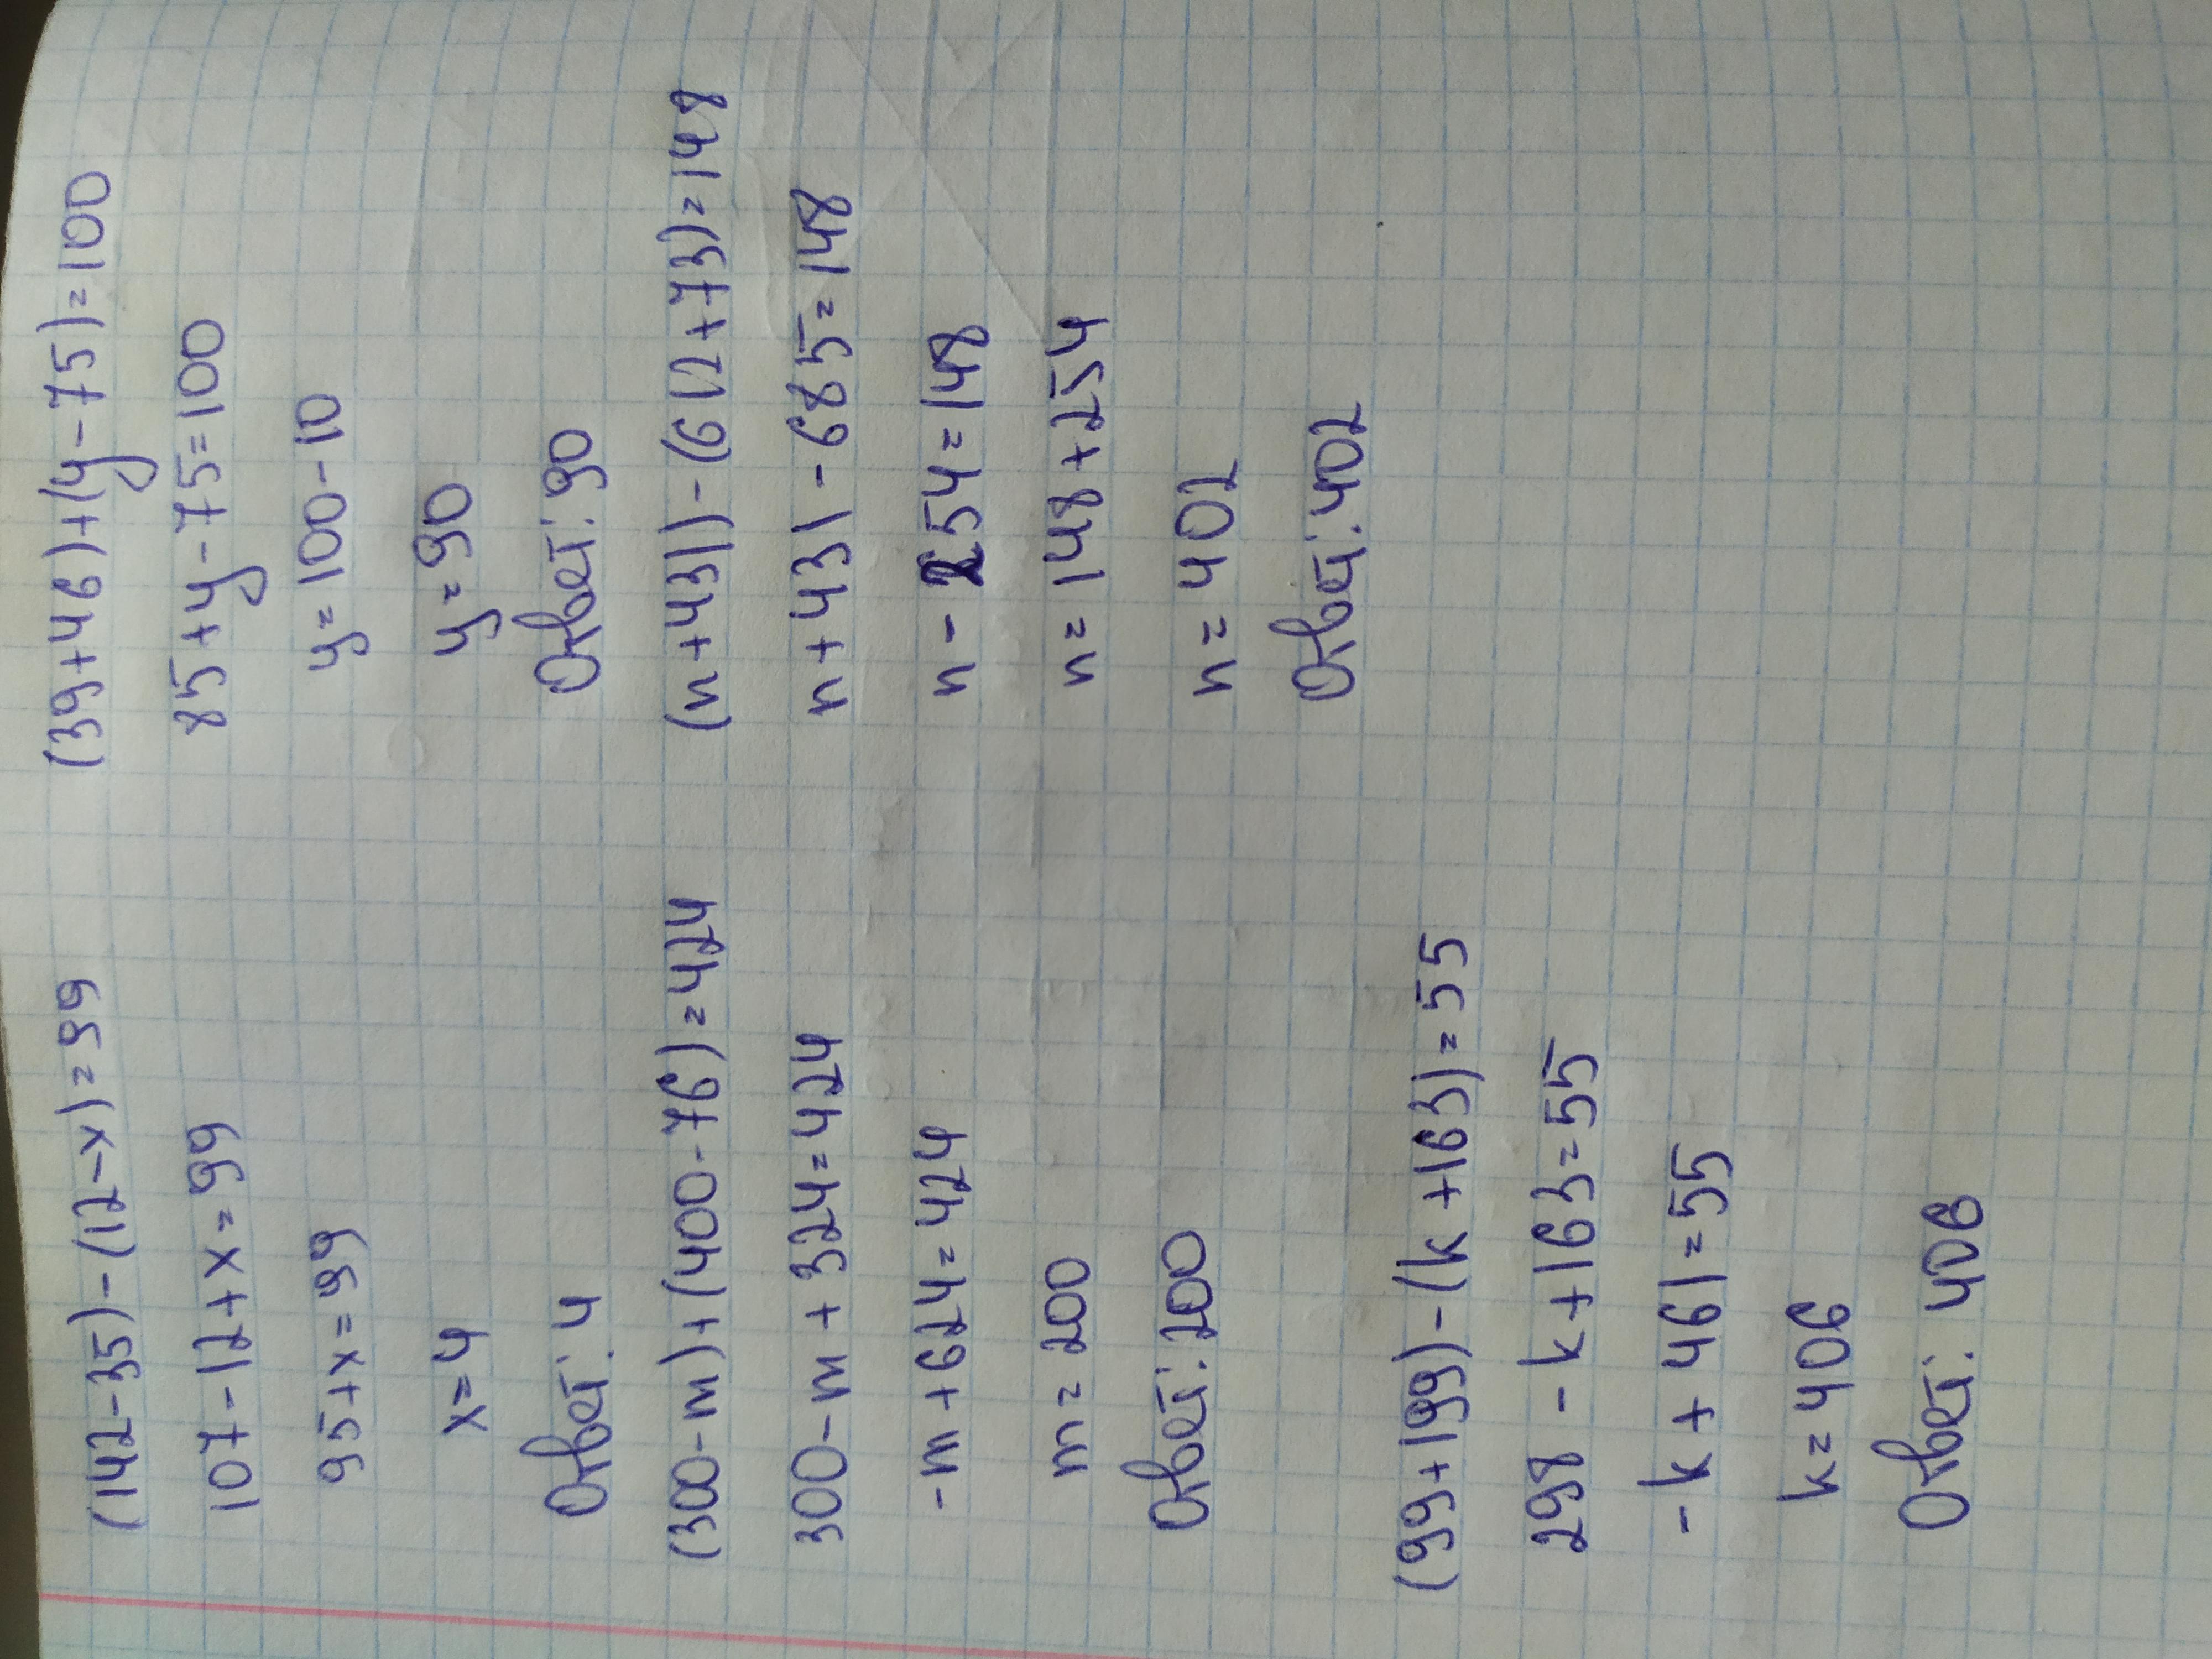 (142-35)-(12-x)=99
107-12+x=99
95+x=99
x=4
Ответ: 4
(39+46)+(y-75)=100
85+y-75=100
y=100-10
y=90
Ответ: 90
(300-m)+(400-76)=424
300-m+324=424
-m+624=424
m=200
Ответ: 200
(n+431)-(612+73)=148
n+431-685=148
n-254=148
n=148+254
n=402
Ответ: 402
(99+199)-(k+163)=55
298-k+163=55
-k+461=55
k=406
Ответ: 406